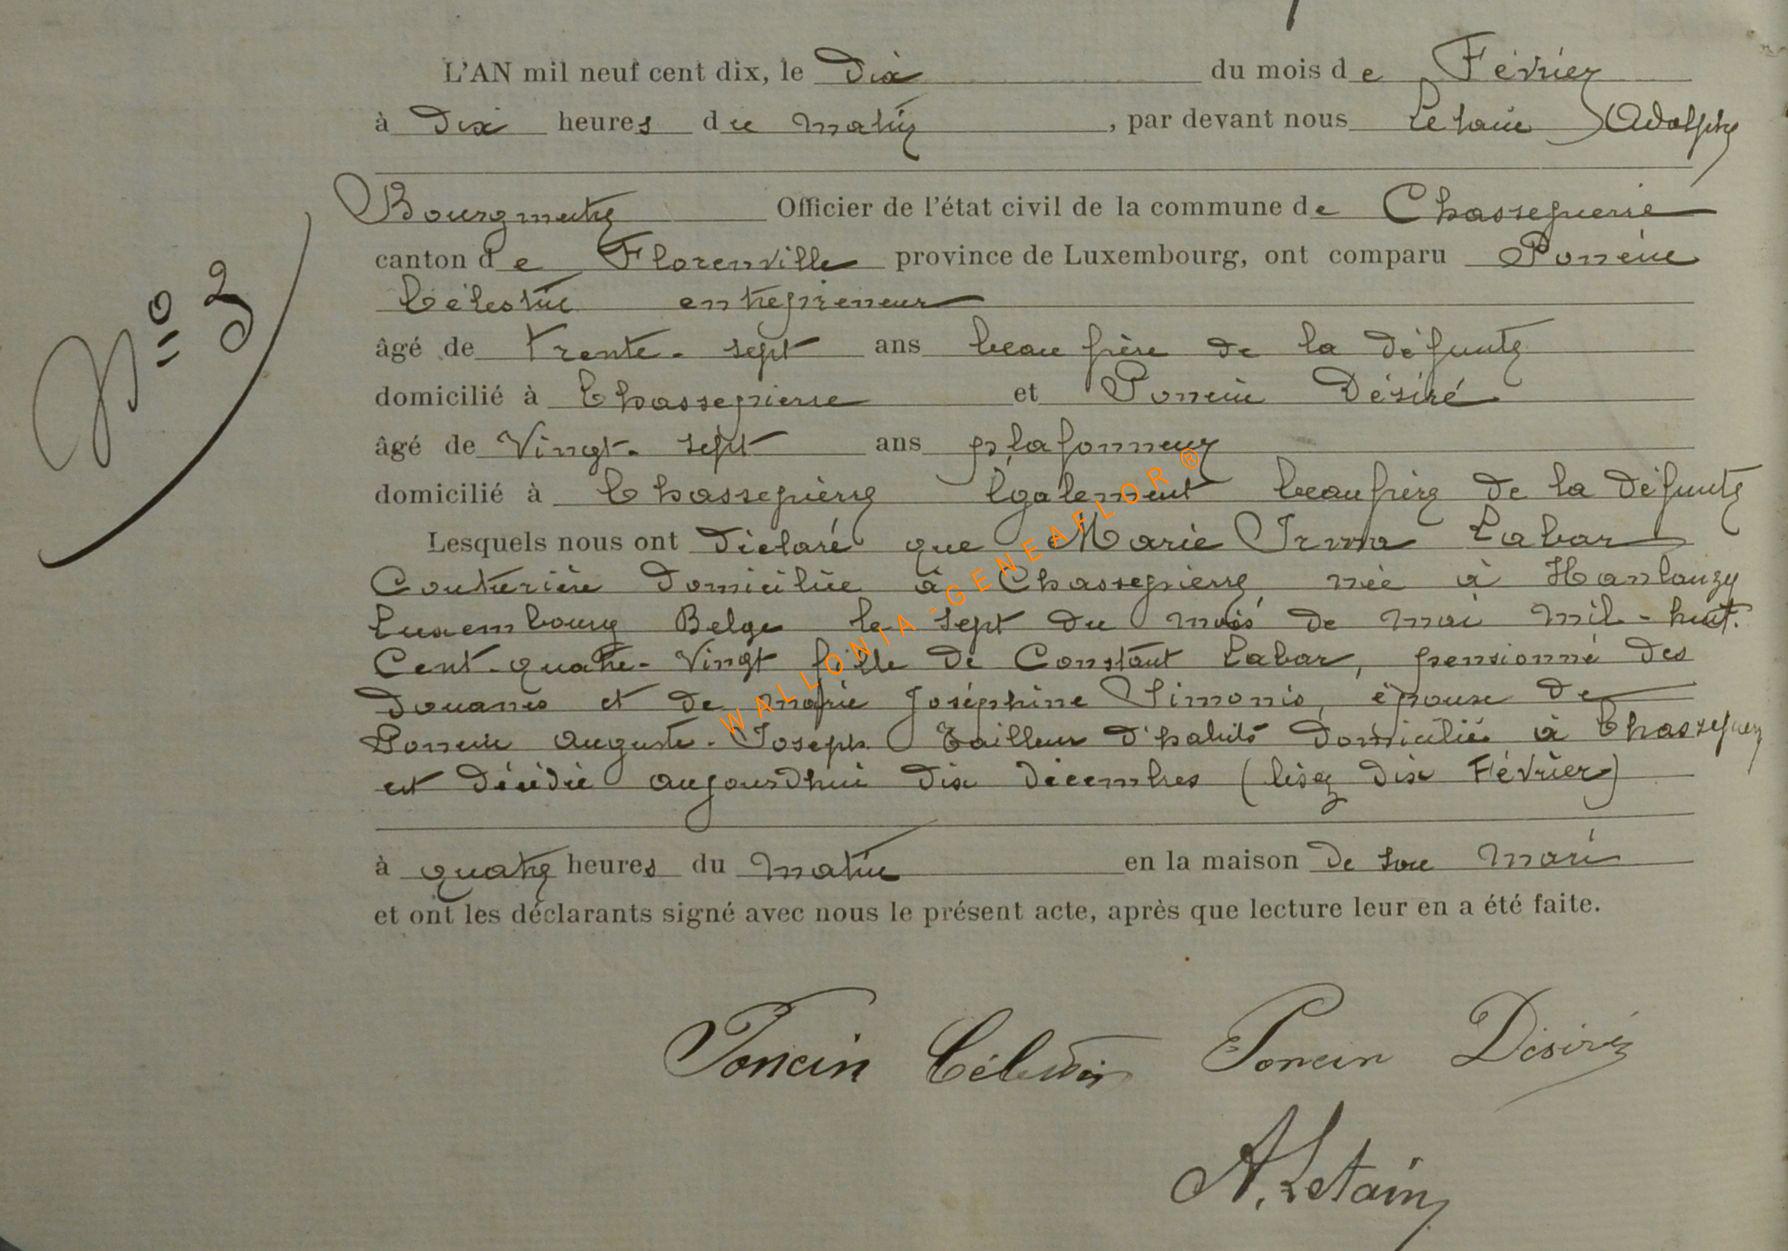 L'AN mil neuf cent dix, le Dix du mois de Février
à Dix heures du Matin, par devant nous Letain Adolphe
Bourgmestre Officier de l'état civil de la commune de Chassepierre
canton de Florenville province de Luxembourg, ont comparu Poncin
Célestin entrepreneur
N° 2
âgé de trente-sept ans beau frère de la défunte
domicilié à Chassepierre et Poncin Désiré
âgé de Vingt-sept ans plafonneur
domicilié à Chassepierre également beaufrère de la défunte
Lesquels nous ont déclaré que Marie Irma Labar
Couturière domiciliée à Chassepierre née à
Luxembourg Belge le sept du mois de mai mil-huit-
Cent-quatre-Vingt fille de Constant Labar, pensionné des
Douanes et de Marie Joséphine Simonis, épouse de
Poncin Auguste-Joseph Tailleur d'habits domiciliée à Chassepierre
est décédée aujourd'hui dix décembres (lisez dix Février)
à quatre heures du Matin en la maison de son Mari
et ont les déclarants signé avec nous le présent acte, après que lecture leur en a été faite.
WALLONIA-GENEAFLOR ®
Poncin Célestin Poncin Désiré
A. Letain